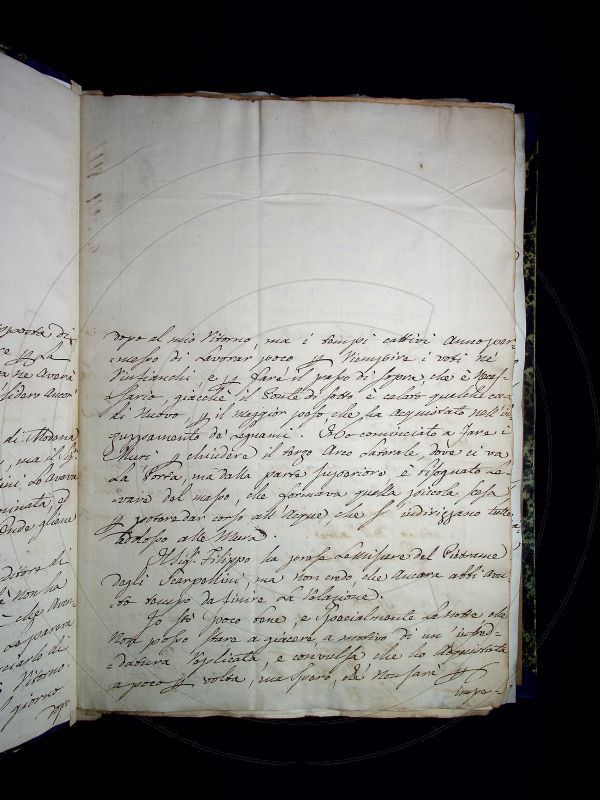 dopo al mio Ritorno, ma i tempi cattivi Anno per=
=messo di Lavorar poco p Riempire i voti ne
Rinfianchi, e p fare il passo di sopra, che è Neces=
=sario, giacchè il Ponte di sotto è calato qualche cosa
di Nuovo, p il maggior peso, che ha acquistato nell'In
zuppamento de Legnami. Ho cominciato a fare i
Muri p chiudere il terzo Arco Laterale, dove ci va
La Porta, ma dalla parte Superiore è bisognato Le
vare del masso, che formava quella piccola
p poter dar corso all'Acque, che s'indirizzano tutte
addosso alle Mura.
Il Sig. Filippo ha prese Le Misure del Pietrame
degli Scarpellini, ma Non credo, che Ancora abbi Avu
=to tempo da finire La Relazione.
Io stò poco bene, e Specialmente La notte che
Non posso stare a giacere, a motivo di un' infred=
=datura Replicata, e convulsa che ho Acquistata
a poco p volta, ma spero, che Non sarà p
impe=